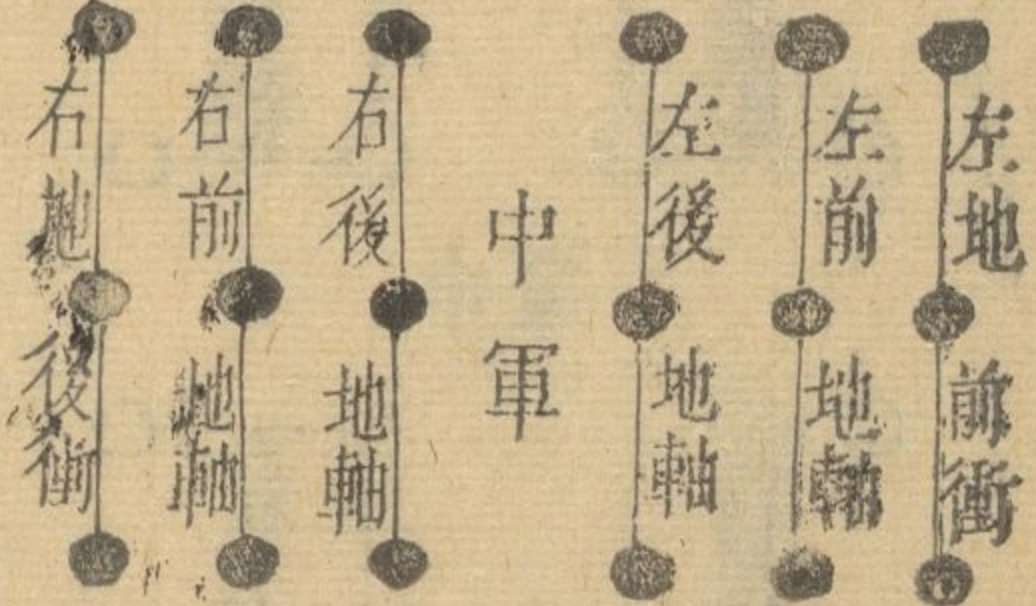 左地前衝
左前地軸
左後地軸
中軍
右後地軸
右前地軸
右地後衝